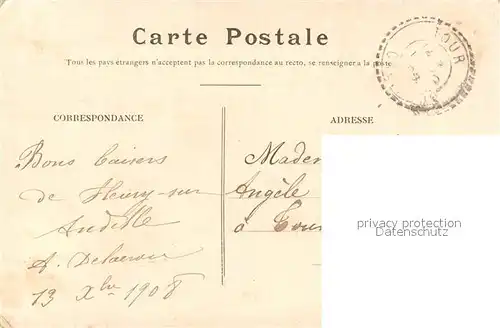 Carte Postale
Tous les pays étrangers n'acceptent pas la correspondance au recto, se renseigner à la poste
CORRESPONDANCE
ADRESSE
TOUR
Bons baisers
de Fleury-sur
Andelle
A.
13 Xbre 1908
Madem
Angèle
à Tour
privacy protection
Datenschutz